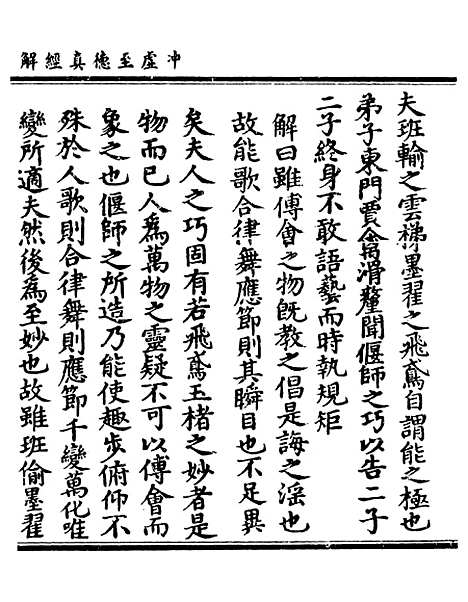 冲虛至德真經解
夫班輸之雲梯墨翟之飛鳶自謂能之極也
弟子東門賈禽滑釐聞偃師之巧以告二子
二子終身不敢語藝而時執規矩
解曰雖傅會之物旣教之倡是誨之滛也
故能歌合律舞應節則其瞬目也不足異
矣夫人之巧固有若飛鳶玉楮之妙者是
物而已人爲萬物之靈疑不可以傅會而
象之也偃師之所造乃能使趣步俯仰不
殊於人歌則合律舞則應節千變萬化唯
變所適夫然後爲至妙也故雖班偷墨翟